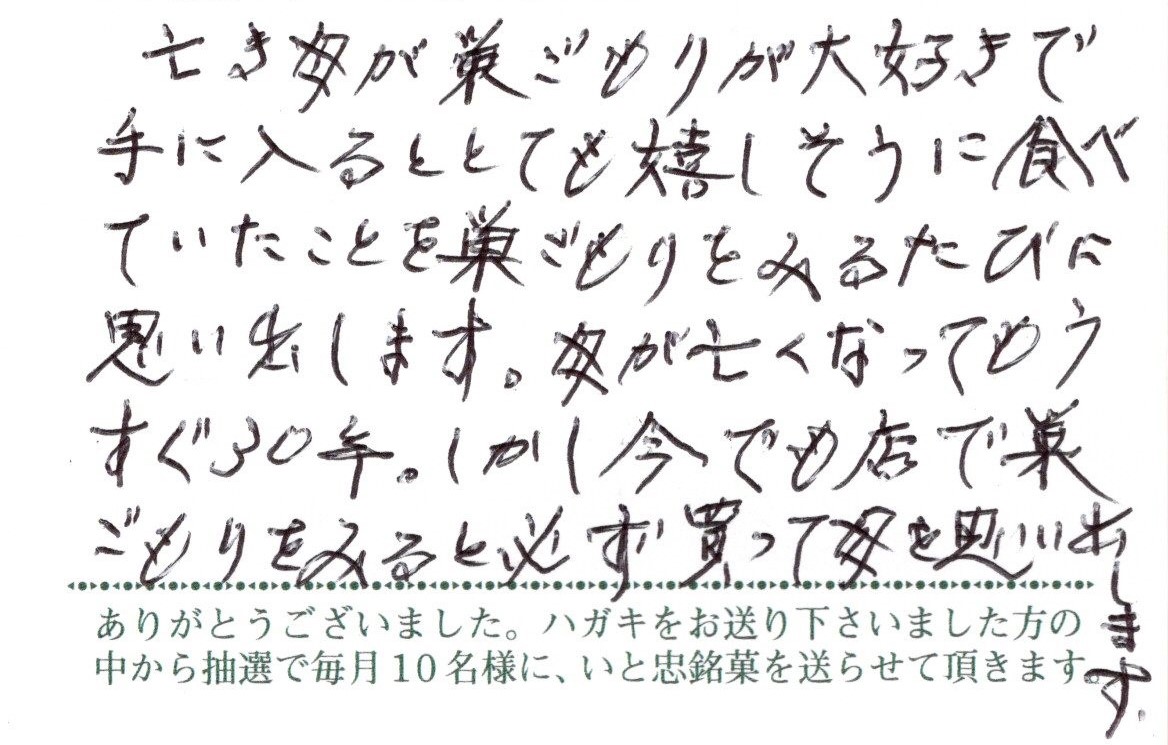 亡き母が巣ごもりが大好きで
手に入るととても嬉しそうに食べ
ていたことを巣ごもりをみるたびに
思い出します。母が亡くなってもう
すぐ30年。しかし今でも店で巣
ごもりをみると必ず買って母を思い出します.
ありがとうございました。ハガキをお送り下さいました方の
中から抽選で毎月10名様に、いと忠銘菓を送らせて頂きます。